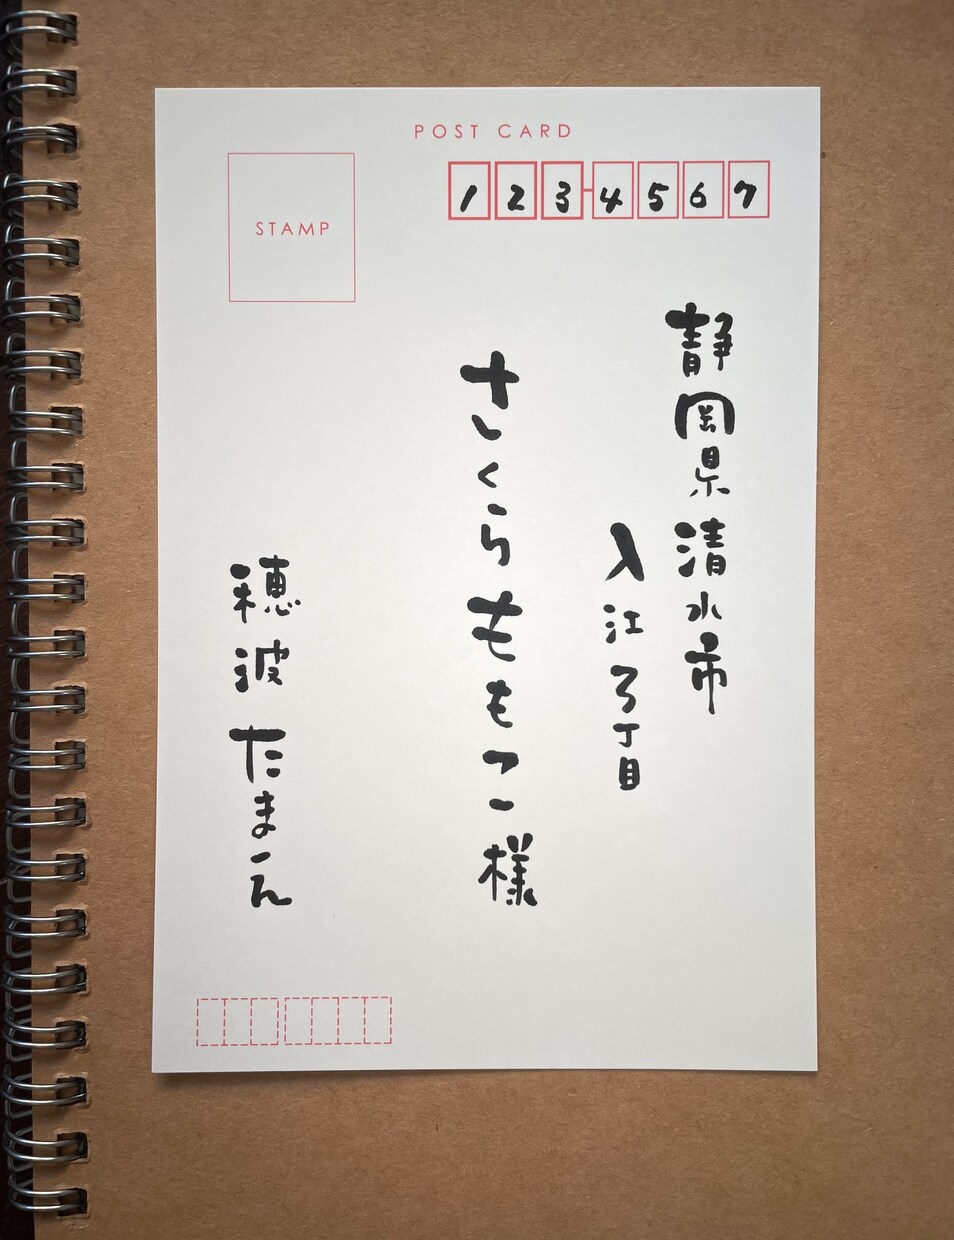 POST CARD
STAMP
123-4567
静岡県清水市
入江3丁目
さくらももこ様
穂波たまえ